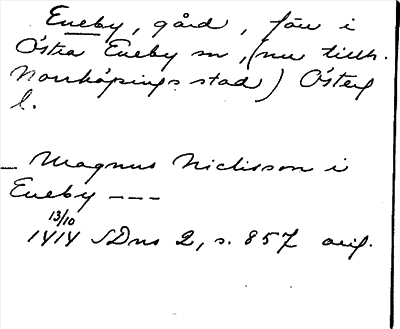 Eneby, gård, förr i
Östra Eneby sn, (nu tillh.
Norrköpings stad) Österg
l.
_ Magnus Niclisson i
Eneby ---
13/10
1414 SDns 2, s. 857 orig.